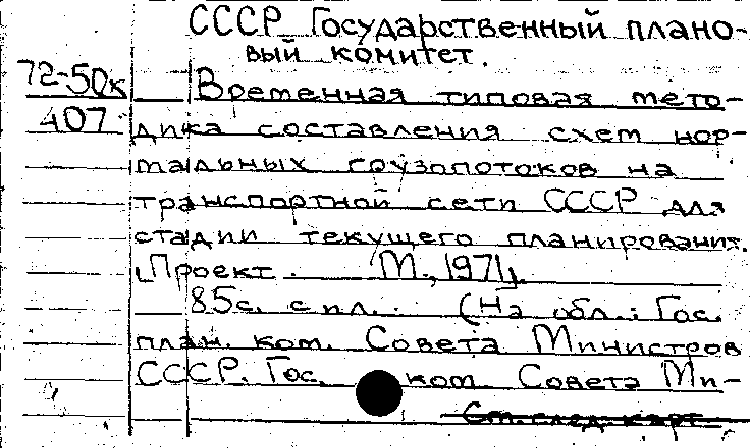 СССР Государственный плано-
вый комитет.
72-50к
407
Временная типовая мето-
дика составления схем нор-
мальных грузопотоков на
транспортной сети СССР для
стадии текущего планирования.
[Проект. М., 1971].
85с. с пл. (На обл.: Гос.
план. ком. Совета Министров
СССР. Гос. ком. Совета Ми-
См. след. карт.